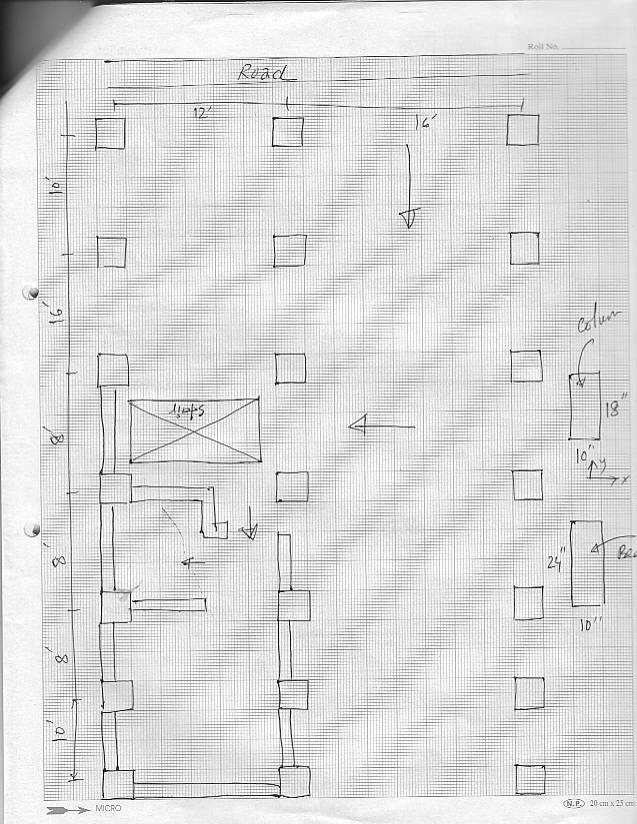 Roll No.
Road
12'
16'
10'
16'
8'
8'
8'
10'
Colum
18"
10"
y
x
24"
10"
MICRO
N.P. 20 cm x 25 cm